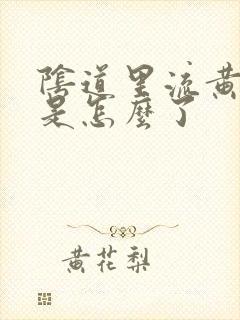 陰道里流黄
是怎麽了
黄花梨